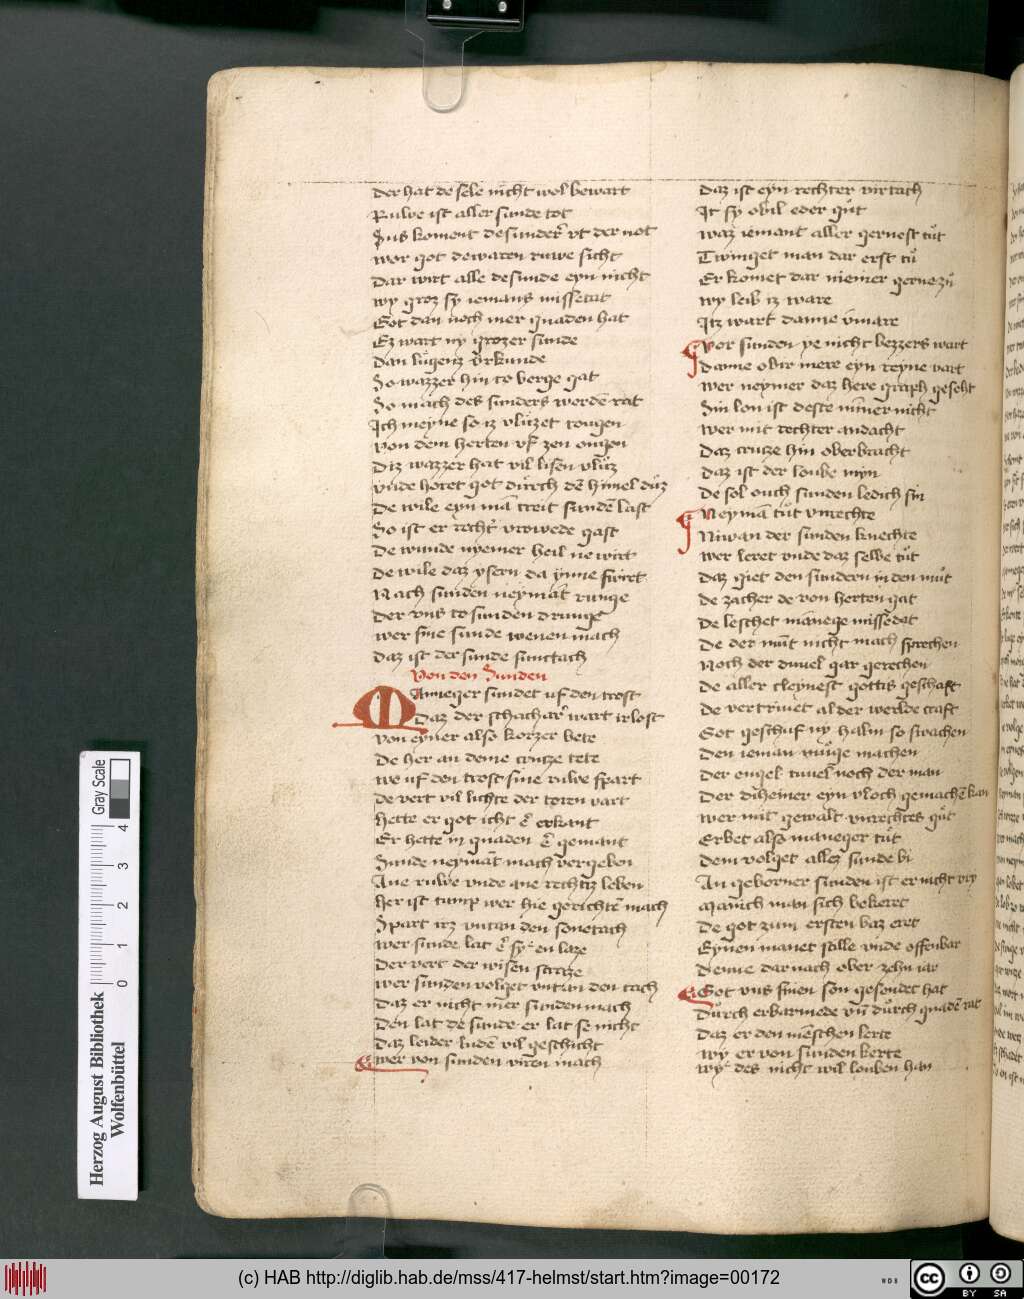 Der hat de sele nicht wol bewart
Ruwe ist aller sunde tot
Jus koment de sunder vt der not
Wer got de waren ruwe sicht
Dar wirt alle de sunde eyn nicht
Wy groz sy iemans missetat
Got dan noch mer gnaden hat
Ez wart ny grozer sunde
Dan lugenz vrkunde
So wazzer hin to berge gat
So mach des sunders werdē rat
Ich meyne so iz vluzet tougen
Von dem herten vf zen ougen
Diz wazzer hat vil lisen vluz
Vnde horet got durch dē himel duz
De wile eyn mā treit sundē last
So ist er recht vrowede gast
De wunde nyemer heil ne wirt
De wile daz ysern da ynne swirt
Nach sunden neymāt runge
Der vns to sunden drunge
Wer sine sunde wenen mach
Daz ist der sunde sunctach
Von den Sunden
Manneger sundet uf den trost
Daz der schachar wart irlost
Von eyner also korzer bete
De her an deme cruce tete
We uf den trost sine ruwe spart
De vert vil lichte der toren vart
Hette er got icht ē erkant
Er hette in gnaden ē gemant
Sunde neymāt mach vergeben
Ane ruwe vnde ane rechtiz leben
Her ist tump wer hie gerichtē mach
Spart irz vntan den sonetach
Wer sunde lat ē sy en laze
Der vert der wisen straze
Wer sunden volget vntan den tach
Daz er nicht mer sunden mach
Den lat de sunde er lat se nicht
Daz leider ludē vil geschicht
Wer von sunden viren mach
Daz ist eyn rechter virtach
It sy obil eder gůt
Waz iemant aller gernest tůt
Twinget man dar erst tů
Er komet dar niemer gerne zů
Wy leib iz ware
Itz wart danne vnmare
Vor sunden ye nicht bezzers wart
Danne obir mere eyn reyne vart
Wer neymer daz here graph geseht
Sin lon ist deste minner nicht
Wer mit rechter andacht
Daz cruze hin oberbracht
Daz ist der loube myn
De sol ouch sunden ledich sin
Neymā tůt vnrechte
Niwan der sunden knechte
Wer leret vnde daz selbe tůt
Daz giet den sundern in den můt
De zacher de von herten gat
De leschet manege missedat
De der munt nicht mach sprechen
Noch der duuel gar gerechen
De aller cleynest gottis geschaft
De vertriuet al der werlde craft
Got geschuf ny halm so swachen
Den ieman muge machen
Der engel tuuel noch der man
Der diheiner eyn vloch gemachē kan
Wer mit gewalt vnrechtes gůt
Erbet also maneger tůt
Dem volget allez sunde bi
An geborner sunden ist er nicht vry
Manich man sich bekeret
De got zum ersten baz eret
Eynen manet stille vnde offenbar
Denne dar nach ober zehn iar
Got vns sinen son gesondet hat
Durch erbarmede vn̄ durch gnadē rat
Daz er den menschen lerte
Wy er von sunden kerte
Wy des nicht wil louben han
Herzog August Bibliothek
Wolfenbüttel
Gray Scale
0 1 2 3 4
(c) HAB http://diglib.hab.de/mss/417-helmst/start.htm?image=00172
WDB
cc BY SA